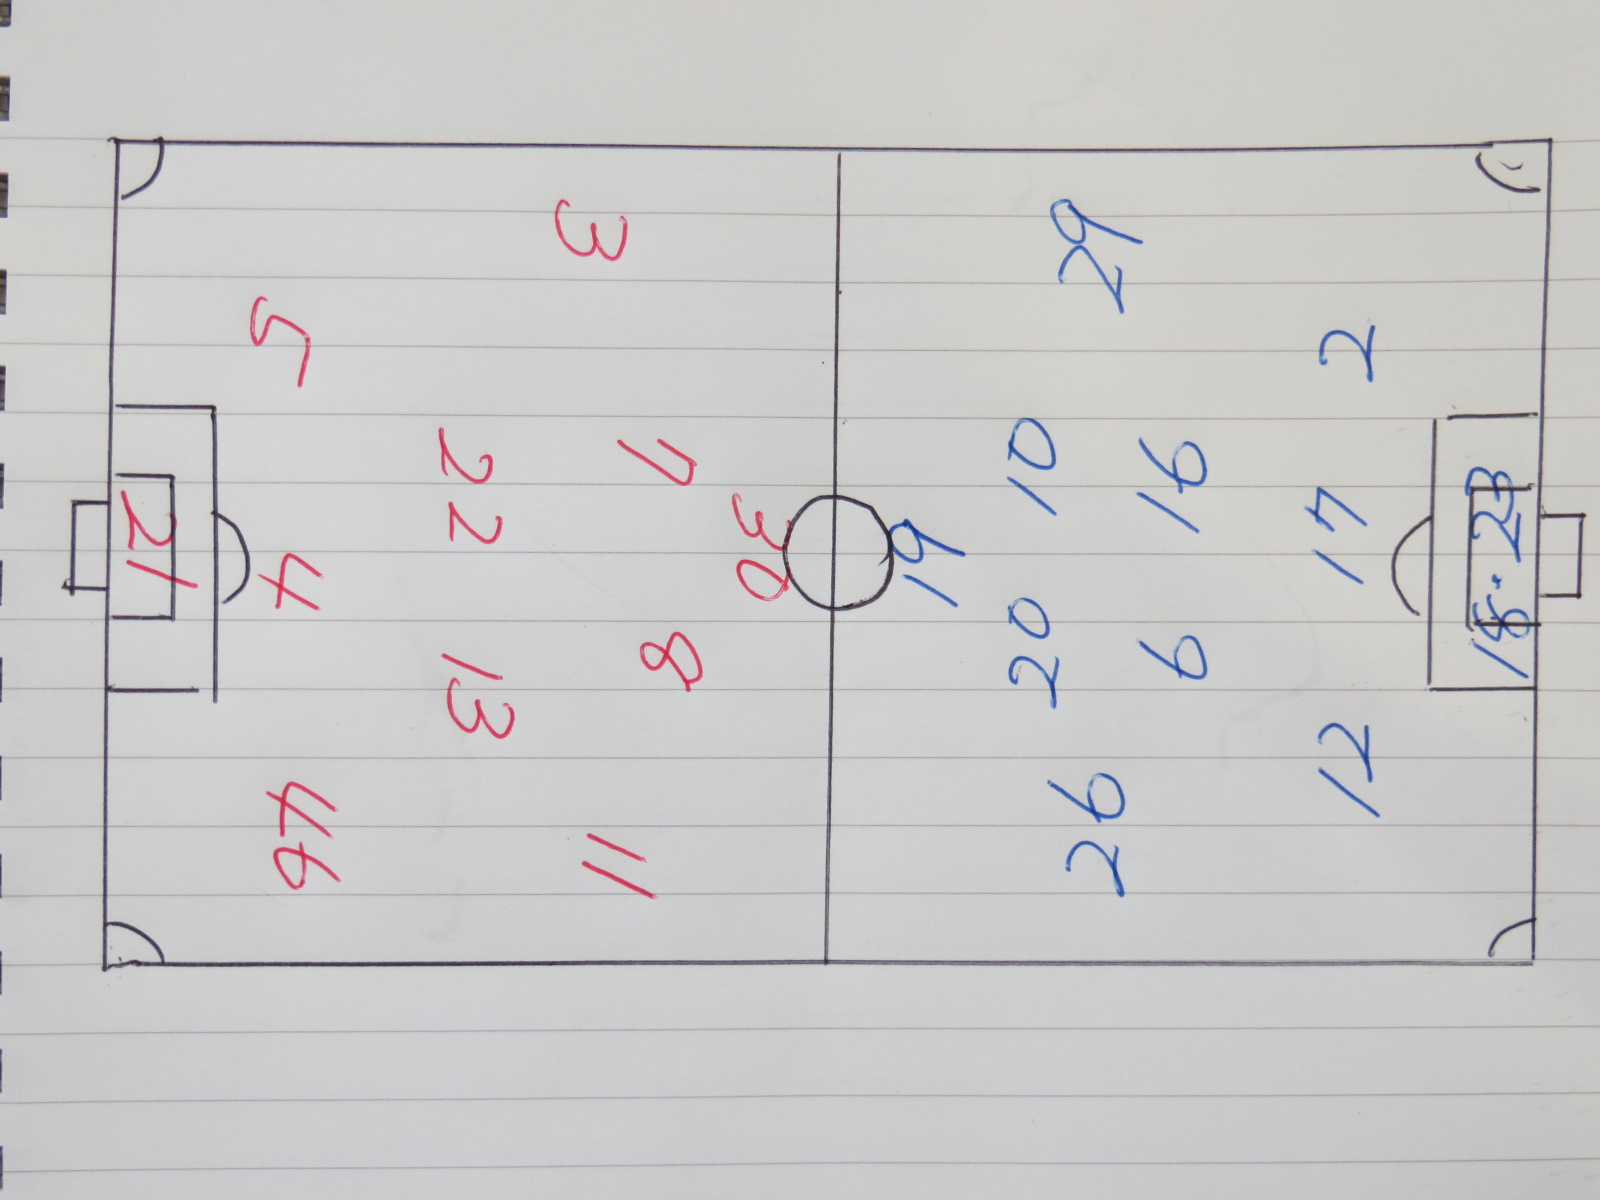 18·23
2 17 12
16 6
29 26
10 20
19
30
7 8
3 11
22 13
5 4 46
21